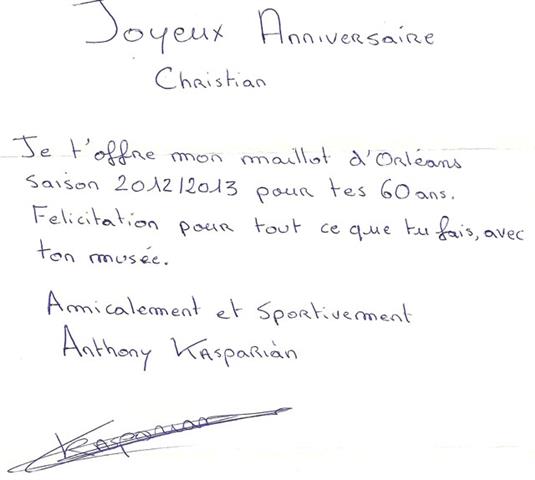 Joyeux Anniversaire
Christian
Je t'offre mon maillot d'Orléans
saison 2012/2013 pour tes 60 ans.
Felicitation pour tout ce que tu fais, avec
ton musée.
Amicalement et Sportivement
Anthony Kasparian
Kasparian